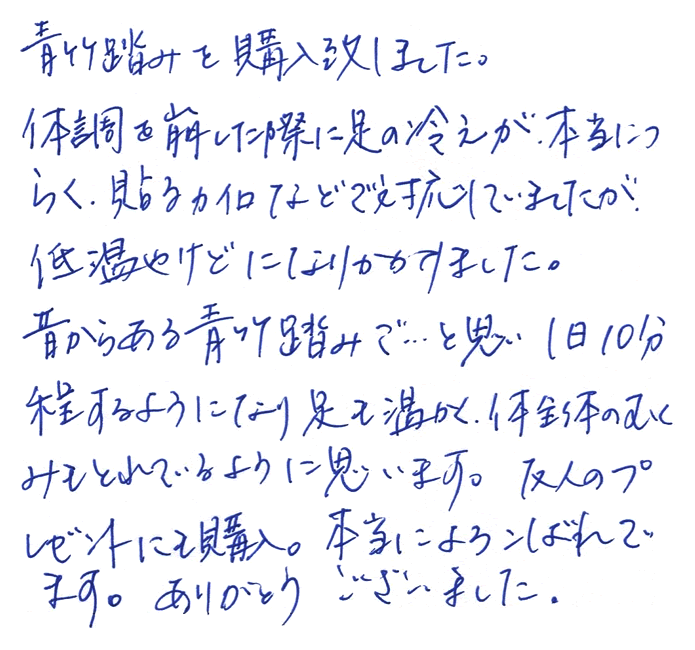 青竹踏みを購入致しました。
体調を崩した際に足の冷えが、本当につ
らく、貼るカイロなどで対抗していましたが、
低温やけどになりかかりました。
昔からある青竹踏みで…と思い1日10分
程するようになり足も温かく、体全体のむく
みもとれているように思います。友人のプ
レゼントにも購入。本当によろこばれてい
ます。ありがとうございました。